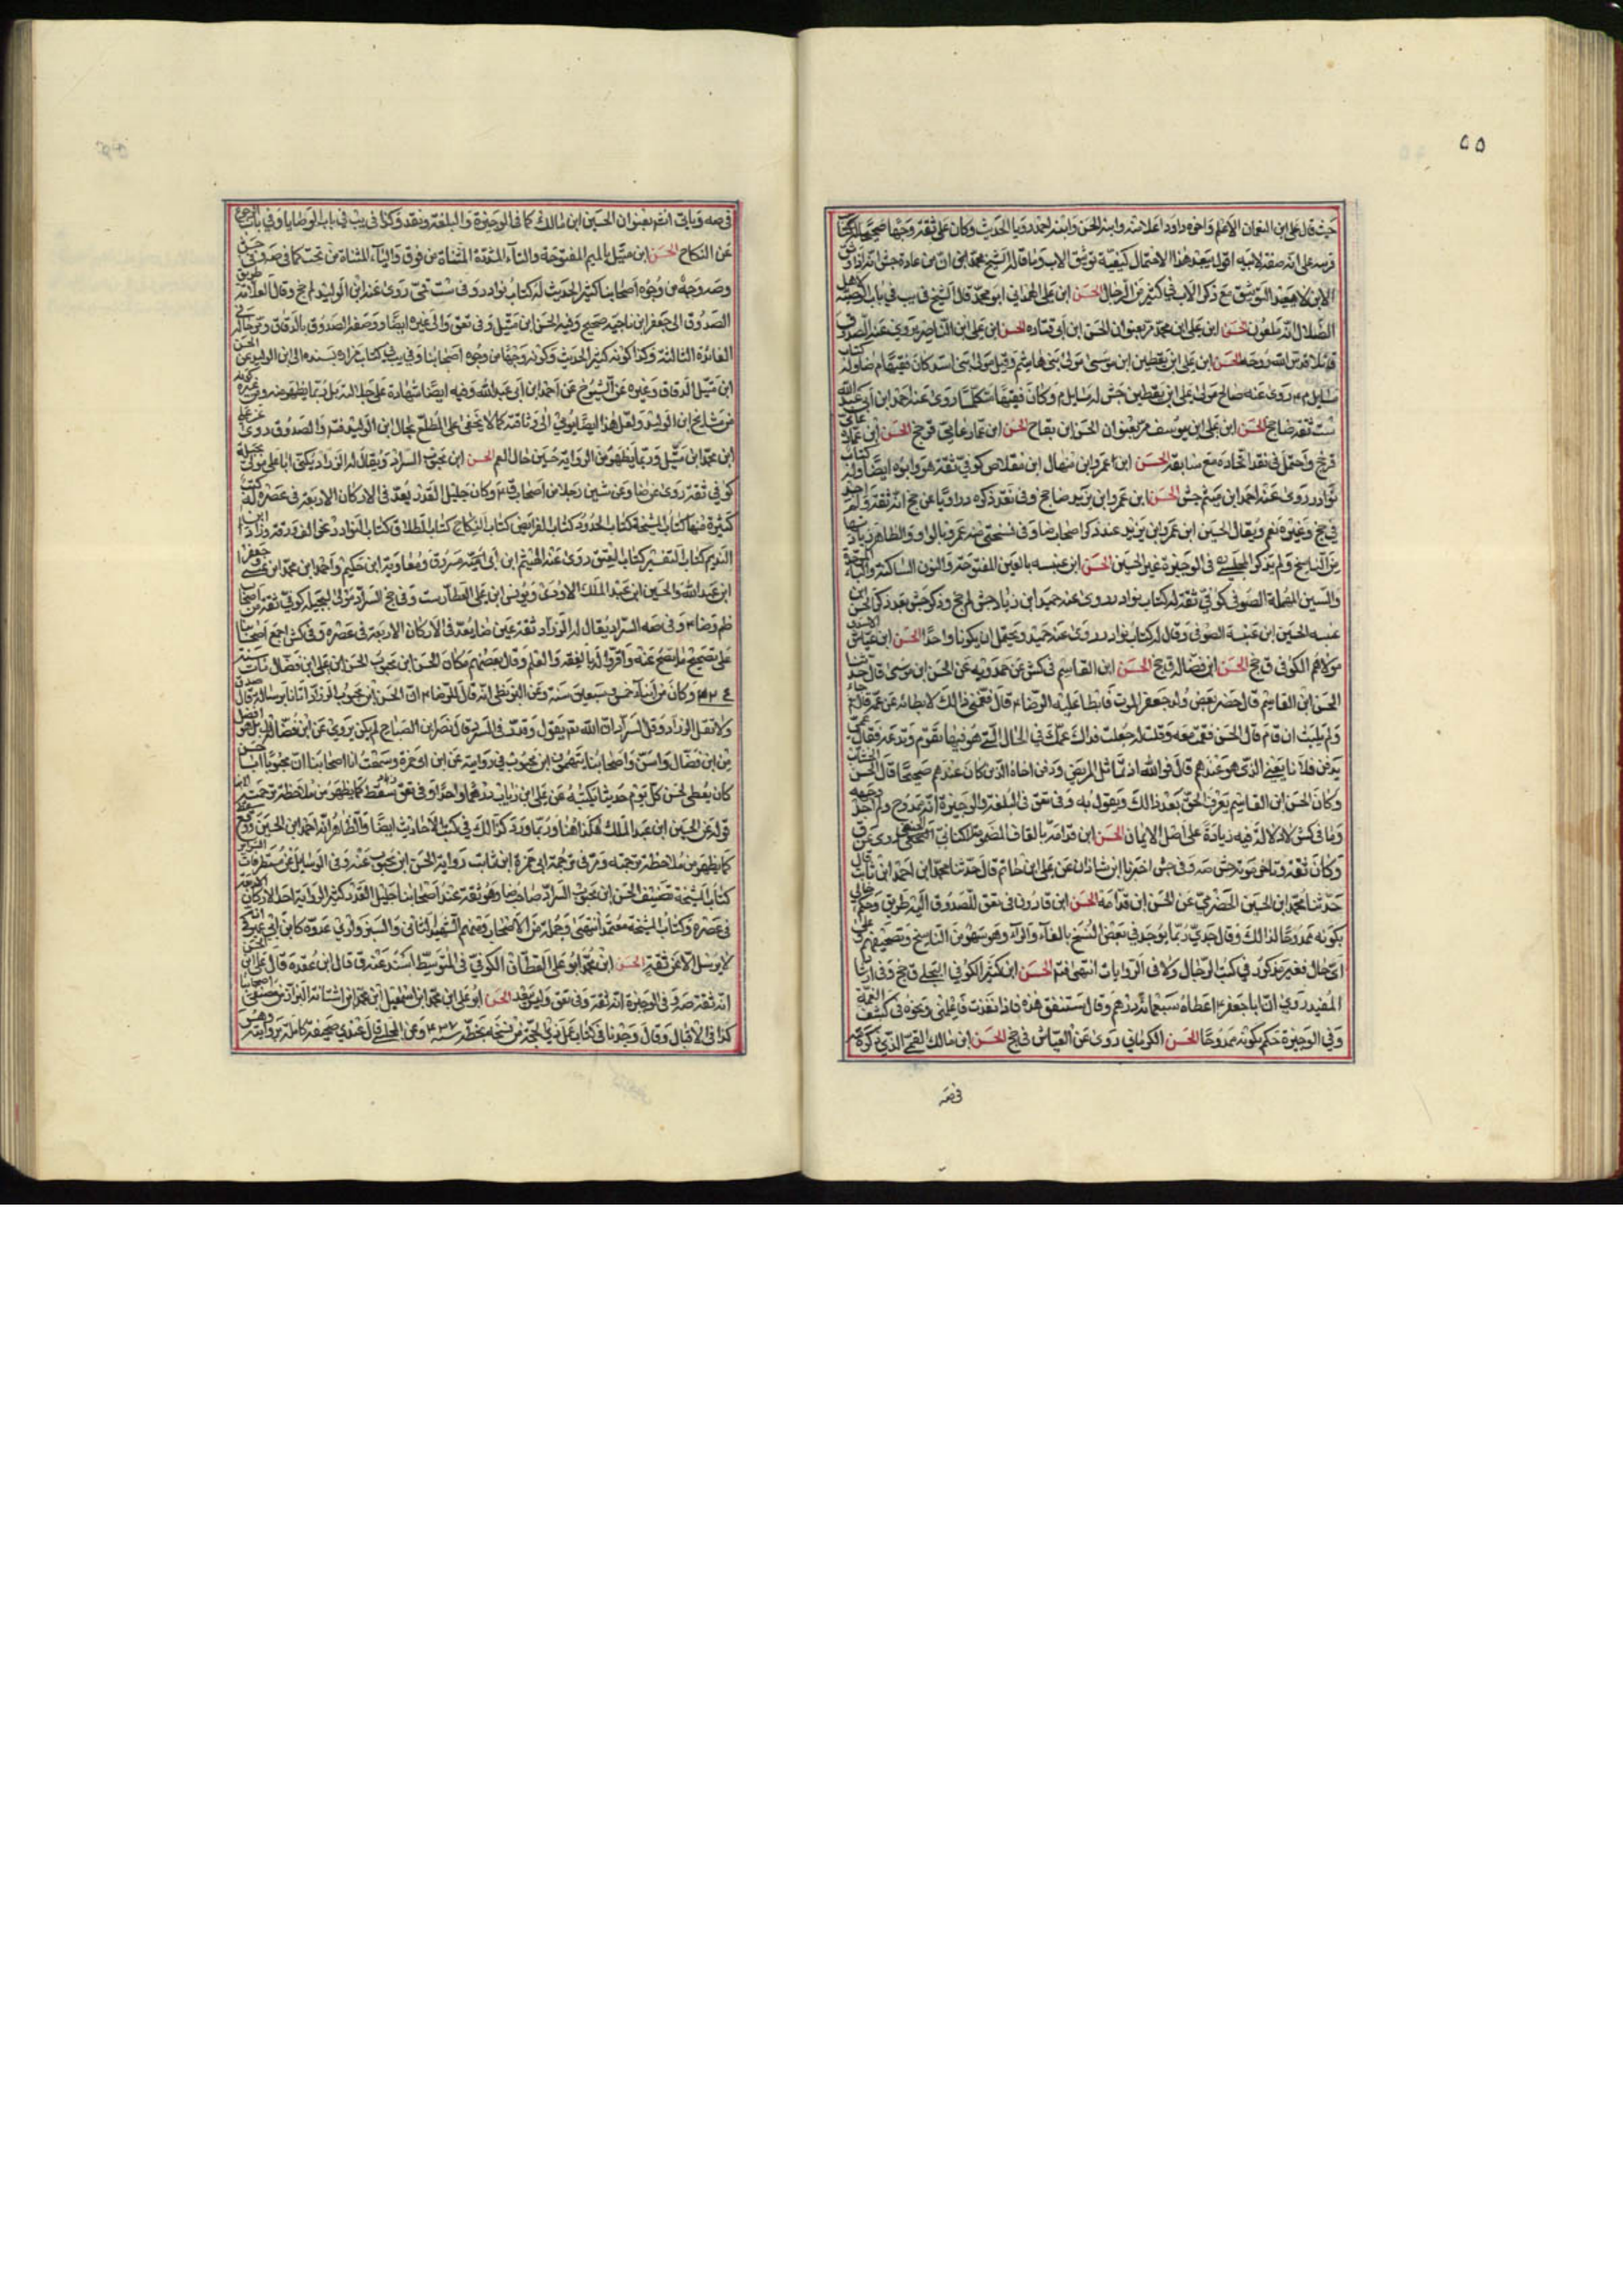 ٥٥
حيث قال علي ابن النعمان الاعلم واخوه داود اعلا منه وابنه الحسن وابنه احمد رويا الحديث وكان علي ثقة وجها صحيحا له كتاب
الابن لا بعيد التوثيق مع ذكر الاب في كثير من الرجال الحسن ابن علي الهمداني ابو محمد قال الشيخ في يب في باب الوصية
الضلال انه ملعون الحسن ابن علي ابن محمد مر بعنوان الحسن ابن ابي قتاده الحسن ابن علي ابن الناصر يروي عنه الصدوق
قائلا قدس الله روحه الحسن ابن علي ابن يقطين ابن موسى مولى بني هاشم وقيل مولى بني اسد كان فقيها م ضا وله كتاب
مسايل م روى عنه صالح مولى علي ابن يقطين جش له مسايل م وكان فقيها متكلما روى عنه احمد ابن ابي عبد الله
ست ثقة ضا جخ الحسن ابن علي ابن يوسف مر بعنوان الحسن ابن بقاح الحسن ابن عمار عامي ق جخ الحسن ابن عمارة
ق جخ واحتمل في نقد اتحاده مع سابقه الحسن ابن عمرو ابن منهال ابن مقلاص كوفي ثقة هو وابوه ايضا وله كتاب
نوادر روى عنه احمد ابن ميثم جش الحسن ابن عمرو ابن يزيد ضا جخ وفي نقد ذكره د راويا عن جخ انه ثقة ولم اجد
في جخ وغيره نعم ويقال الحسين ابن عمرو ابن يزيد عند ذكر اصحاب ضا وفي نسختي منه عمرو بالواو والظاهر زيادتها
من الناسخ ولم يذكر المجلسي في الوجيزة غير الحسين الحسن ابن عنبسه بالعين المفتوحة والنون الساكنة والباء
والسين المهملة الصوفي كوفي ثقة له كتاب نوادر روى عنه حميد ابن زياد جش لم جخ وذكر جش بعد ذكر الحسن ابن
عنبسه الحسين ابن عنبسة الصوفي وقال له كتاب نوادر روى عنه حميد ويحتمل ان يكونا واحدا الحسن ابن عياش الاسدي
مولاهم الكوفي ق جخ الحسن ابن فضاله ق جخ الحسن ابن القاسم في كش عن حمدويه عن الحسن ابن موسى قال حدثنا
الحسن ابن القاسم قال حضر بعض ولد جعفر الموت فابطا عليه الرضا م قال فغمني ذلك لابطائه عن عمه قال ثم جاء
ولم يلبث ان قام قال الحسن فقمت معه وقلت له جعلت فداك عمك في الحال التي هو فيها تقوم وتدعه فقال عمي
يدفن فلانا يعني الذي هو عندهم قال فوالله اذ تماثل المريض ودفن اخاه الذي كان عندهم صحيحا قال الحسن الخشاب
وكان الحسن ابن القاسم يعرف الحق بعد ذلك ويقول به وفي تعق في البلغة والوجيزة انه ممدوح ولم اجد وجهه
وما في كش لا دلالة فيه زيادة على اصل الايمان الحسن ابن قدامة بالقاف المضمومة الكناني الحنفي روى عن ق
وكان ثقة وتاخر موته جش صه وفي جش اخبرنا ابن شاذان عن علي ابن حاتم قال حدثنا محمد ابن احمد ابن ثابت قال
حدثنا محمد ابن الحسين الحضرمي عن الحسن ابن قدامة الحسن ابن قارون في تعق للصدوق اليه طريق وحكم خالي
بكونه ممدوحا لذلك وقال جدي ربما يوجد في بعض النسخ بالفاء والراء وهو سهو من الناسخ وتصحيفهم على
اي حال فغير مذكور في كتب الرجال ولا في الروايات انتهى فتم الحسن ابن كثير الكوفي البجلي ق جخ وفي ارشاد
المفيد روى ان ابا جعفر م اعطاه سبعمائة درهم وقال ستنفق هذه فاذا نفذت فاعلمني ونحوه في كشف الغمة
وفي الوجيزة حكم بكونه ممدوحا الحسن الكرماني روى عن العياش في جخ الحسن ابن مالك القمي الذي ذكره
في صه
في صه وياتي انه بعنوان الحسين ابن مالك كما في الوجيزة والبلغة ونقد وكذا في يب في باب الوصايا وفي باب الرجوع
عن النكاح الحسن ابن متيل بالميم المفتوحة والتاء المشددة المثناة من فوق والياء المثناة من تحت كما في صه وفي
وصه وجه من وجوه اصحابنا كثير الحديث له كتاب نوادر وفي ست قمي روى عنه ابن الوليد لم جخ وقال العلامة طريق
الصدوق الى جعفر ابن ناجيه صحيح وفيه الحسن ابن متيل وفي تعق والى غيره ايضا ووصفه الصدوق بالدقاق ومر حاله في
الفائدة الثالثة وكذا كونه كثير الحديث وكونه وجها من وجوه اصحابنا وفي يب في كتاب مزاره بسنده الى ابن الوليد عن الحسن
ابن متيل الدقاق وغيره عن الشيوخ عن احمد ابن ابي عبد الله وفيه ايضا شهادة على جلالته بل ربما يظهر منه ومن غيره كونه
من مشايخ ابن الوليد ولعل هذا ايضا يومي الى وثاقته كما لا يخفى على المطلع بحال ابن الوليد فتم والصدوق روى عن علي
ابن محمد ابن متيل وربما يظهر من الرواية حسن حال العم الحسن ابن محبوب السراد ويقال له الزراد يكنى ابا علي مولى بجيلة
كوفي ثقة روى عن ضا وعن ستين رجلا من اصحاب ق م وكان جليل القدر يعد في الاركان الاربعة في عصره له كتب
كثيرة منها كتاب المشيخة كتاب الحدود كتاب الفرايض كتاب النكاح كتاب الطلاق كتاب النوادر نحو الف ورقة وزاد ابن
النديم كتاب التفسير كتاب العتق روى عنه الهيثم ابن ابي مسروق ومعاوية ابن حكيم واحمد ابن محمد ابن عيسى وجعفر
ابن عبد الله والحسين ابن عبد الملك الاودي ويونس ابن علي العطار ست وفي جخ السراد مولى لبجيله كوفي ثقة من اصحاب
ظم وضا م وفي صه السراد يقال له الزراد ثقة عين ضا يعد في الاركان الاربعة في عصره وفي كش اجمع اصحابنا
على تصحيح ما يصح عنه واقروا له بالفقه والعلم وقال بعضهم مكان الحسن ابن محبوب الحسن ابن علي ابن فضال مات سنة
٢٢٤ وكان من ابناء خمس وسبعين سنة وعن البزنطي انه قال للرضا م ان الحسن ابن محبوب الزراد اتانا برسالة قال صدق
ولا تقل الزراد وقل السراد ان الله تعالى يقول وقدر في السرد قال نصر ابن الصباح لم يكن يروي عن ابن فضال بل هو افضل
من ابن فضال واسن واصحابنا يتهمون ابن محبوب في روايته عن ابن ابي حمزة وسمعت انا اصحابنا ان محبوبا ابا حسن
كان يعطي الحسن كل يوم حديثا يكتبه عن علي ابن رئاب درهما واحدا وفي تعق سقط كما يظهر من ملاحظة ترجمته
قوله عن الحسين ابن عبد الملك هكذا هنا وربما ورد كذلك في كتب الاحاديث ايضا والظاهر انه احمد ابن الحسين وقع سقط
كما يظهر من ملاحظة ترجمته ومر في ترجمة ابي حمزة ابن ثابت رواية الحسن ابن محبوب عنه وفي الوسايل عن مستطرفات السرائر
كتاب المشيخة تصنيف الحسن ابن محبوب السراد صاحب ضا وهو ثقة عند اصحابنا جليل القدر كثير الرواية احد الاركان الاربعة
في عصره وكتاب المشيخة معتمد انتهى وجملة من الاصحاب ومنهم الشهيد الثاني والسبزواري عدوه كابن ابي عمير في انه
لا يرسل الا عن ثقة الحسن ابن محمد ابو علي القطان الكوفي في المتوسط اسند عنه ق قال ابن عقدة قال علي ابن الحسن
انه ثقة صه وفي الوجيزة انه ثقة وفي تعق وليس ببعيد الحسن ابو علي ابن محمد ابن اسمعيل ابن محمد ابن اشناس البزاز من مصنفي اصحابنا
كذا في الاقبال وقال وجدنا في كتاب عمل ذي الحجة من نسخة بخطه سنة ٤٣٧ وعن المجلسي قال عندي صحيفة كاملة بروايته